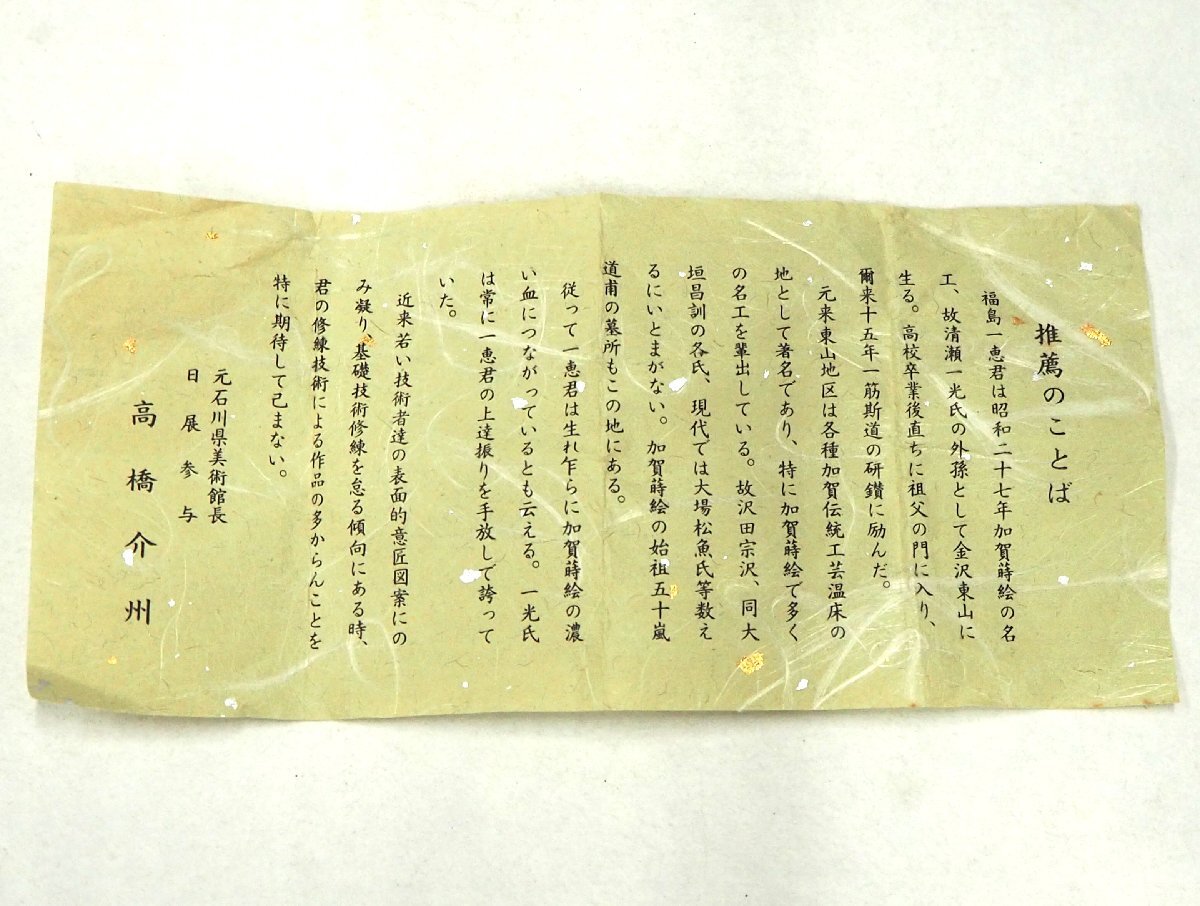 推薦のことば
福島一恵君は昭和二十七年加賀蒔絵の名
工、故清瀬一光氏の外孫として金沢東山に
生る。高校卒業後直ちに祖父の門に入り、
爾来十五年一筋斯道の研鑽に励んだ。
元来東山地区は各種加賀伝統工芸温床の
地として著名であり、特に加賀蒔絵で多く
の名工を輩出している。故沢田宗沢、同大
垣昌訓の各氏、現代では大場松魚氏等数え
るにいとまがない。加賀蒔絵の始祖五十嵐
道甫の墓所もこの地にある。
従って一恵君は生れ乍らに加賀蒔絵の濃
い血につながっているとも云える。一光氏
は常に一恵君の上達振りを手放しで誇って
いた。
近来若い技術者達の表面的意匠図案にの
み凝り、基礎技術修練を怠る傾向にある時、
君の修練技術による作品の多からんことを
特に期待して己まない。
元石川県美術館長
日展参与
高橋介州